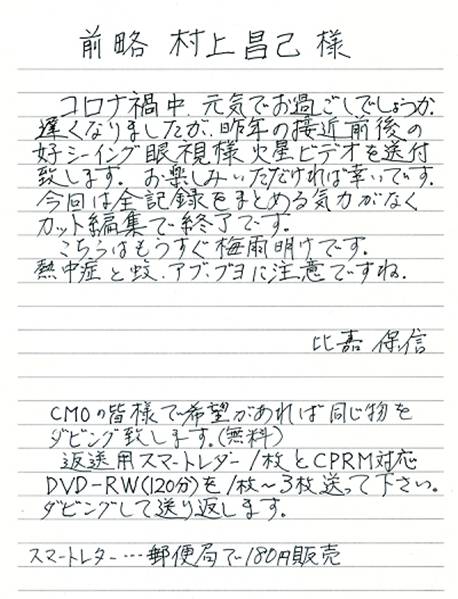 前略 村上昌己 様
コロナ禍中、元気でお過ごしでしょうか。
遅くなりましたが、昨年の接近前後の
好シーイング眼視様火星ビデオを送付
致します。お楽しみいただければ幸いです。
今回は全記録をまとめる気力がなく
カット編集で終了です。
こちらはもうすぐ梅雨明けです。
熱中症と蚊、アブ、ブヨに注意ですね。
比嘉 保信
CMOの皆様で希望があれば同じ物を
ダビング致します。(無料)
返送用スマートレター1枚とCPRM対応
DVD-RW(120分)を1枚〜3枚送って下さい。
ダビングして送り返します。
スマートレター…郵便局で180円販売